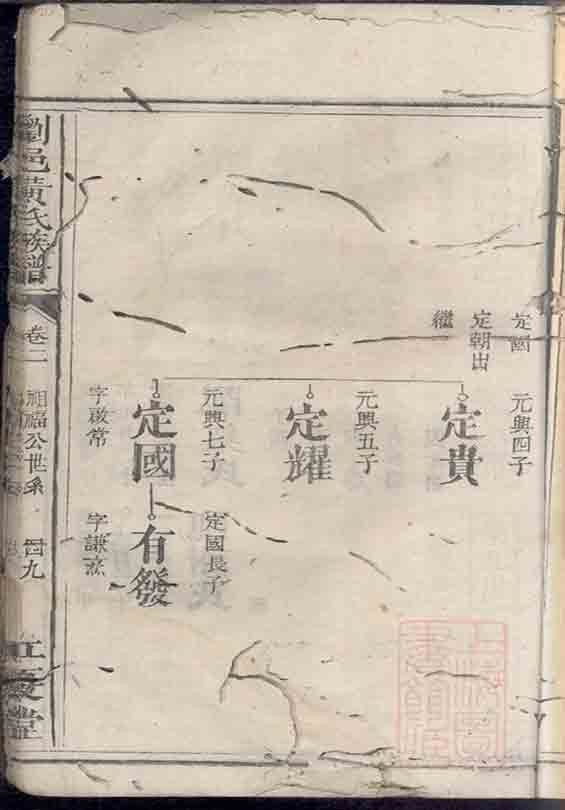 定國
定朝出
繼
元興四子
定貴
元興五子
定耀
元興七子
定國
字啟常
定國長子
有發
字謙
劉邑黃氏族譜
卷二
祖福公世系
四九
江夏堂